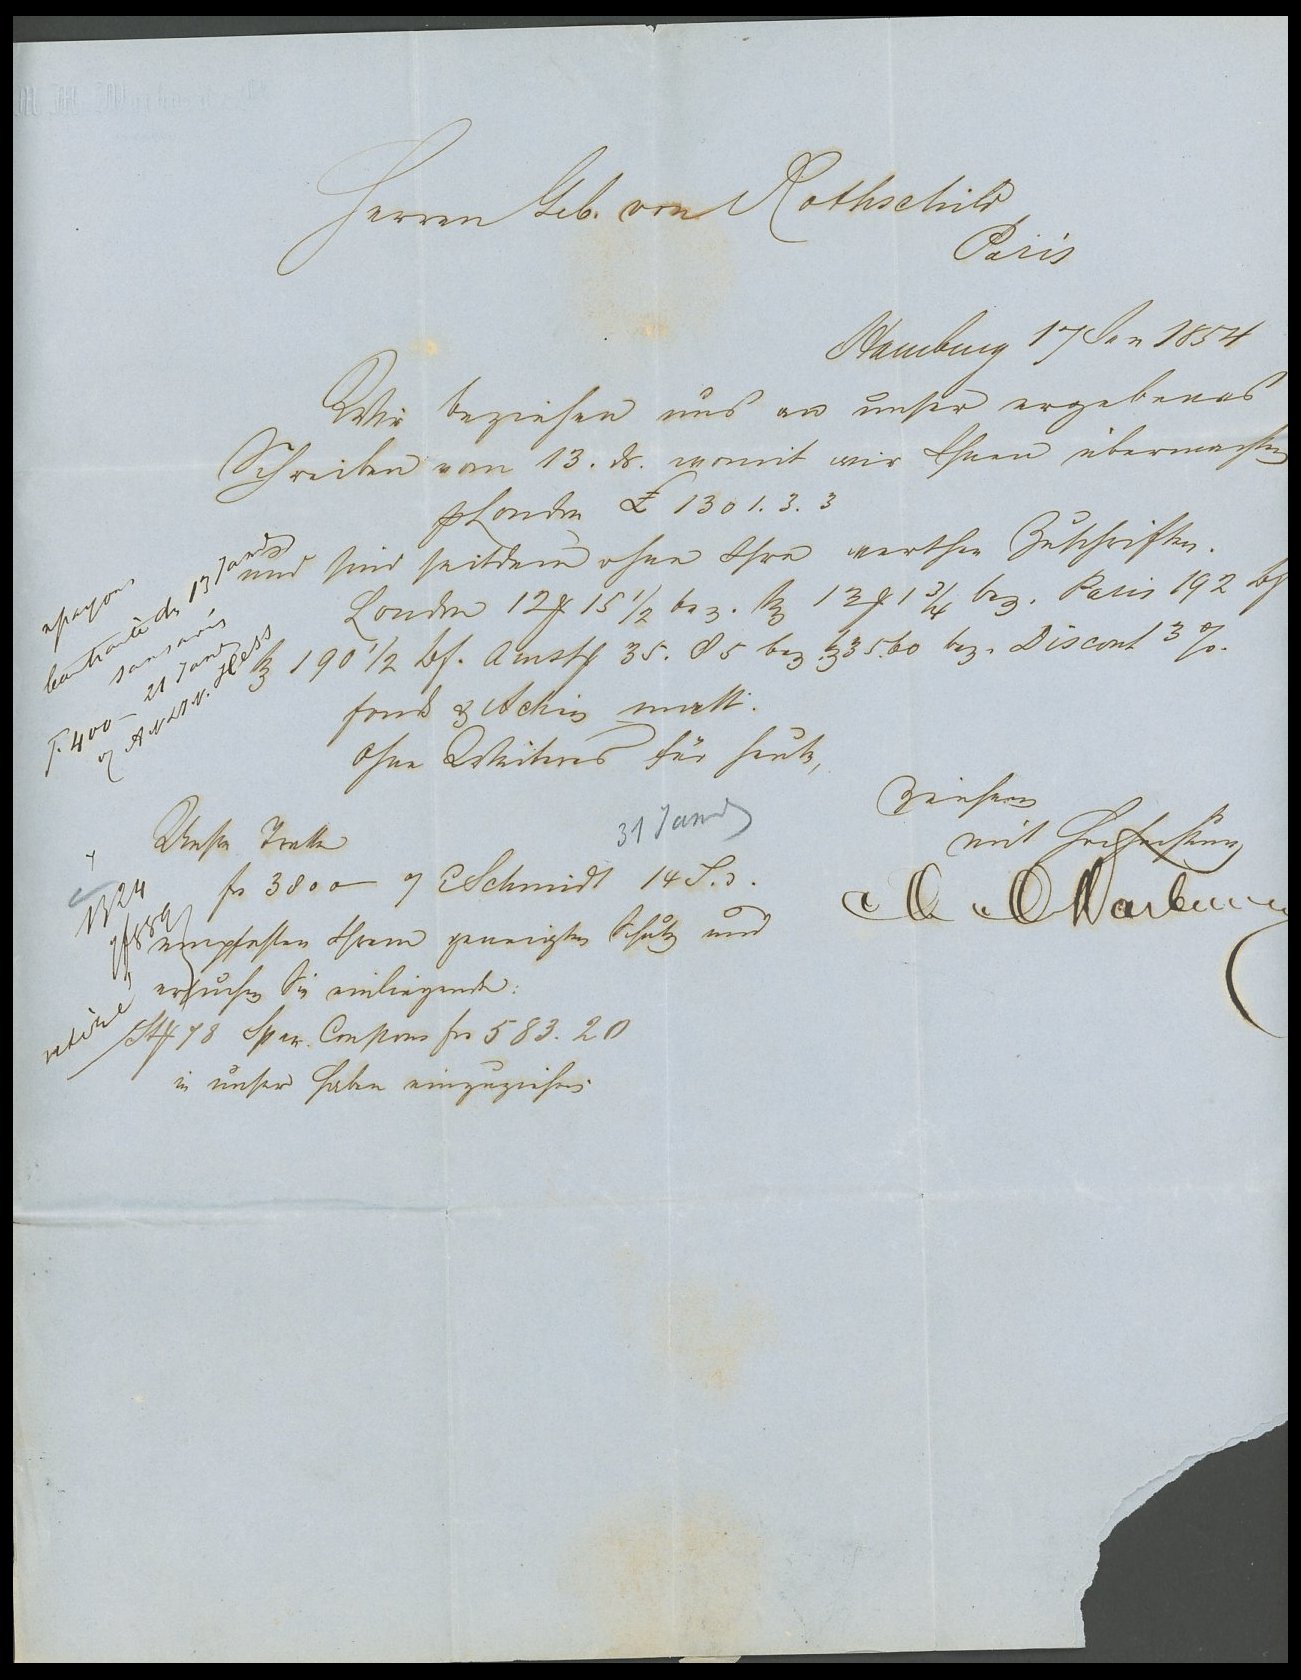 Herren Geb. von Rothschild
Paris
Hamburg 17 Jan 1854
Wir beziehen uns an unser ergebenes
Schreiben vom 13. ds. womit wir Ihnen übermachten
pLondon £ 1301.3.3
und sind seitdem ohne Ihre werthen Zuschriften.
London 12 15 1/2 bez. 13 1 3/4 bez. Paris 192 bf
190 1/2 bf. Amst 35.85 bez 35.60 bez. Discont 3 %.
fonds & Actien matt.
Ohne Weiteres für heute,
zeichnen
mit Hochachtung
Warburg
Unsre Tratte
31 Janv
fs 3800 — C Schmidt 14 T.d.
empfehlen Ihrem geneigten Schutz und
ersuchen Sie einliegende:
St 78 Span. Coupons fs 583.20
in unser Haben einzuziehen
13 Janv
sans avis
F. 400 — 21 Janv
1324